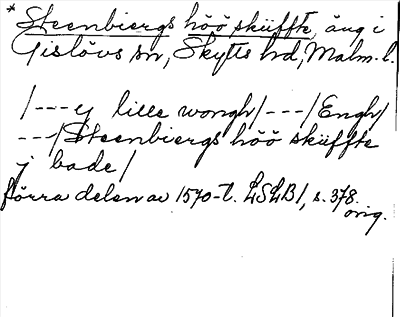 * Steenbiergs höö skiffte, äng i
Gislövs sn, Skytts hd, Malm. l.
/---y lille wongh/---/Engh/
---/Steenbiergs höö skiffte
j bade/
förra delen av 1570-t. LSLB1, s. 378.
orig.